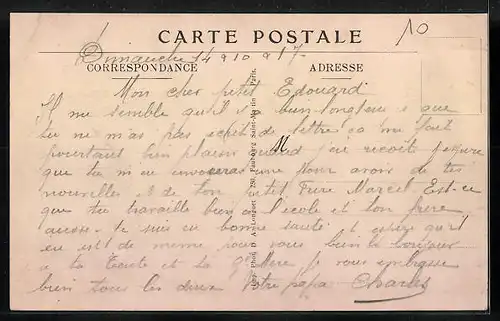 CARTE POSTALE
10
Dimanche 14 9 10 917
CORRESPONDANCE
ADRESSE
Mon cher petit Edouard
Il me semble qu'il y bien longtemps que
tu ne m'as pas de lettre ca me fait
pourtant bien plaisir quand j'en recoit j'espere
que tu m'en une pour avoir de tes
nouvelles et de ton petit Frere Marcel Est-ce
que tu travaille bien a l'ecole et ton frere
aussi je suis en bonne sante et espere qu'il
en est de meme pour vous bien le bonjour
a ta Tante et ta Gd Mere je vous embrasse
bien tous les deux Votre papa Charles
Phot. D. A. Longuet 250, Faubourg Saint-Martin Paris.